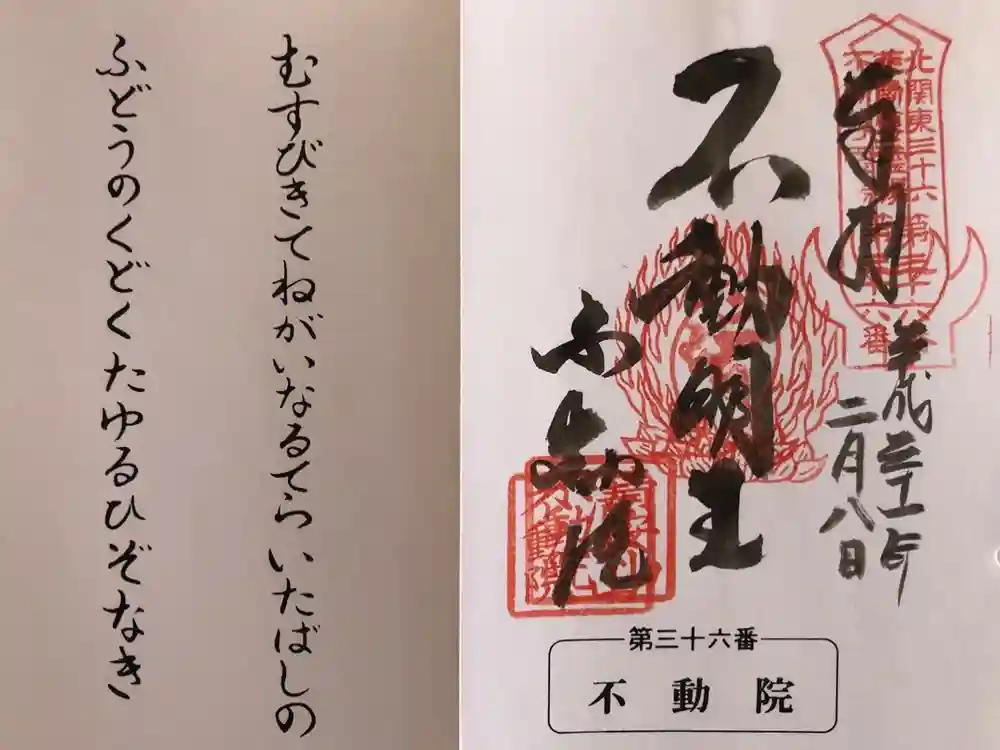 むすびきてねがいなるてらいたばしの
ふどうのくどくたゆるひぞなき
奉拝
平成三十一年
二月八日
不動明王
不動院
北関東三十六第三十六番
第三十六番
不動院